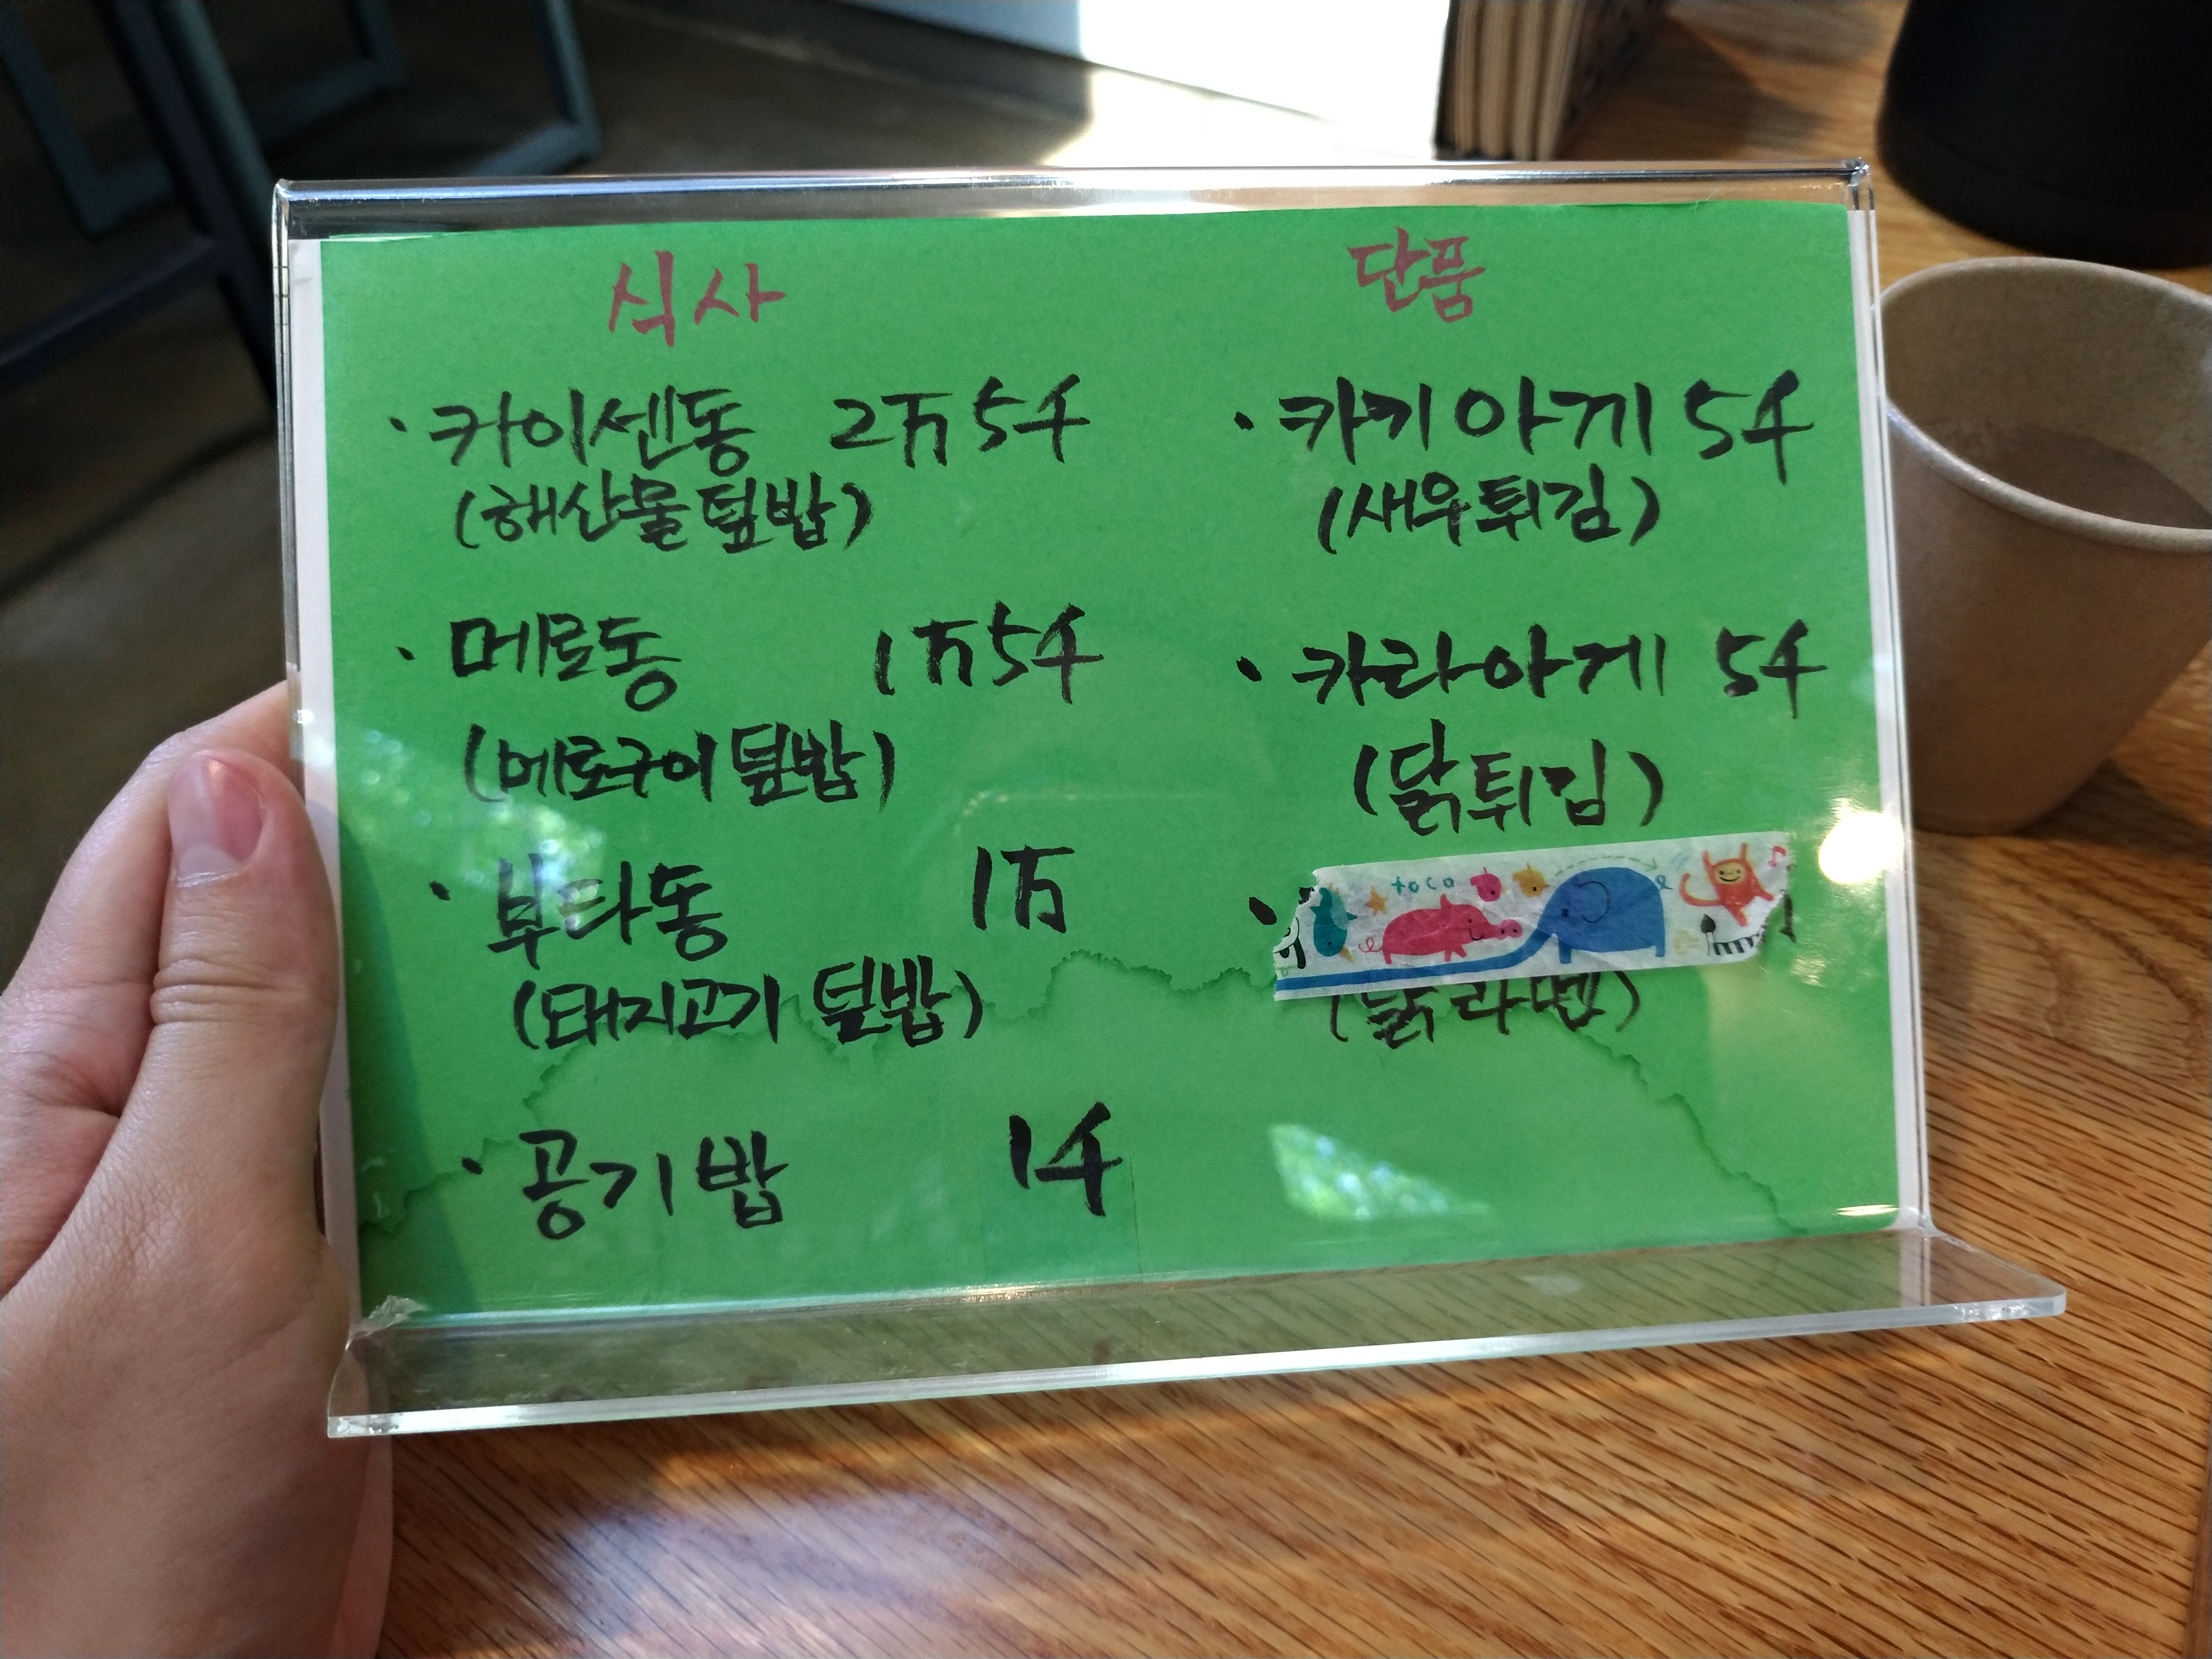 식사
· 카이센동 2万5千
(해산물덮밥)
· 메로동 1万5千
(메로구이 덮밥)
· 부타동 1万
(돼지고기 덮밥)
· 공기밥 1千
단품
· 카키아게 5千
(새우튀김)
· 카라아게 5千
(닭튀김)
toco
(닭라멘)